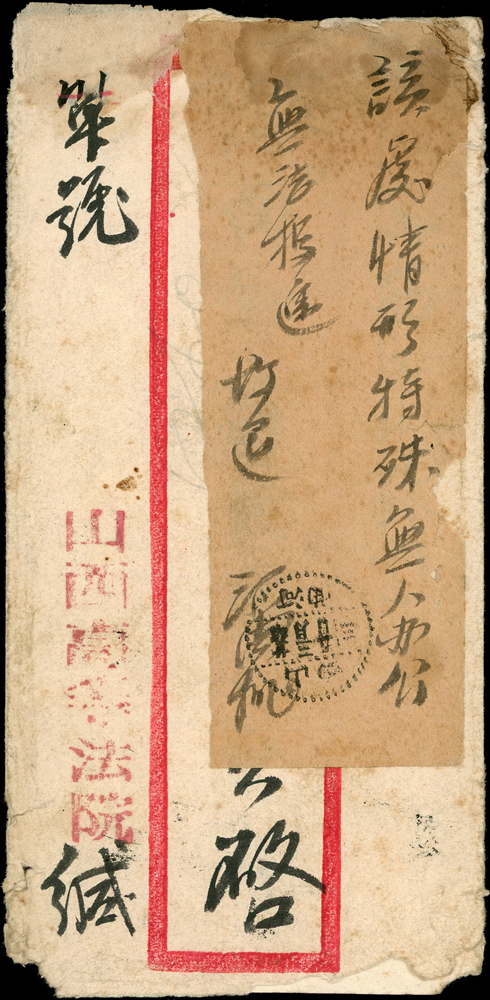 該處情形特殊無人办公
無法投遞 故退
啓
單號
山西高等法院
緘